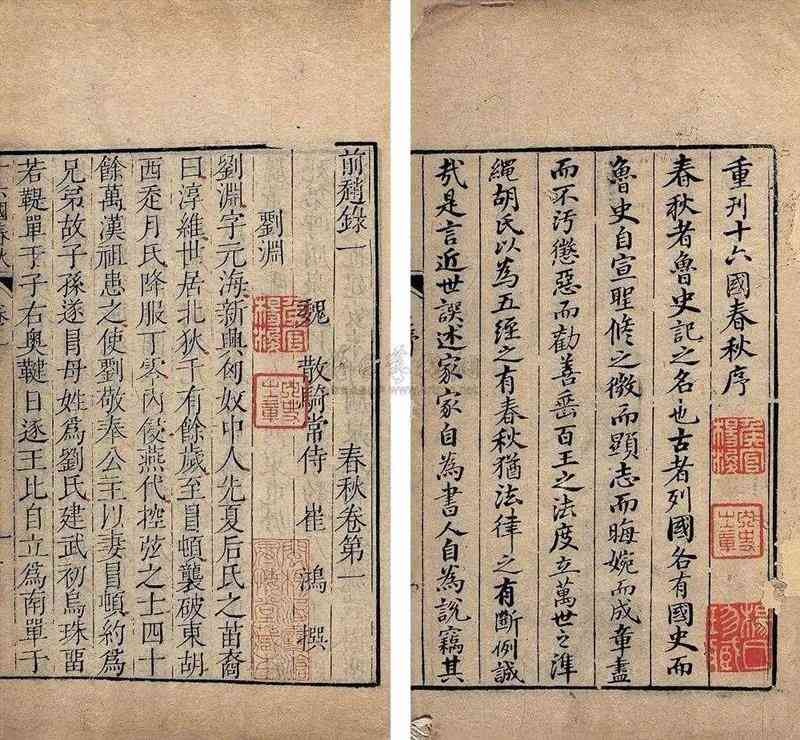 重刊十六國春秋序
春秋者魯史記之名也古者列國各有國史而
魯史自宣聖修之微而顯志而晦婉而成章盡
而不汚懲惡而勸善垂百王之法度立萬世之準
繩胡氏以為五經之有春秋猶法律之有斷例誠
㦲是言近世誤述家家自為書人自為說竊其
序
侯官楊浚
內史之章
前趙錄一 春秋卷第一
魏 散騎常侍 崔鴻 撰
劉淵
劉淵字元海新興匈奴中人先夏后氏之苗裔
曰淳維世居北狄千有餘歲至冒頓襲破東胡
西走月氏降服丁零內侵燕代控弦之士四十
餘萬漢祖患之使劉敬奉公主以妻冒頓約爲
兄弟故子孫遂冒母姓爲劉氏建武初烏珠留
若鞮單于子右奧鞬日逐王比自立爲南單于
十六國春秋 卷一